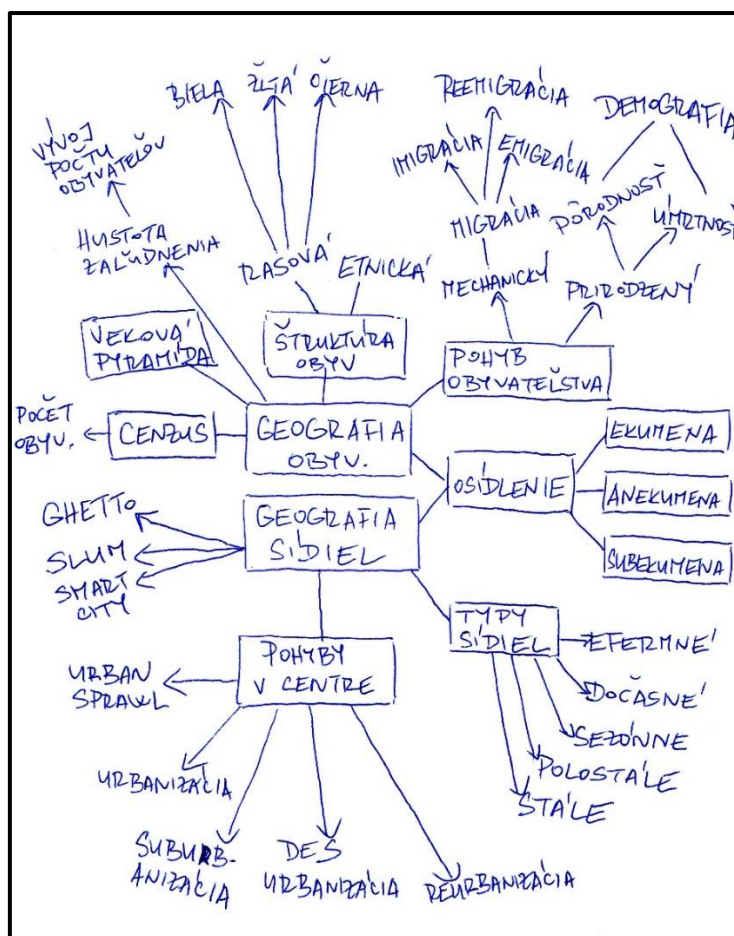 BIELA
ŽLTÁ
ČIERNA
REEMIGRÁCIA
DEMOGRAFIA
VÝVOJ
POČTU
OBYVATEĽOV
IMIGRÁCIA
EMIGRÁCIA
MIGRÁCIA
PÔRODNOSŤ
ÚMRTNOSŤ
HUSTOTA
ZAĽUDNENIA
RASOVÁ
ETNICKÁ
MECHANICKÝ
PRIRODZENÝ
VEKOVÁ
PYRAMÍDA
ŠTRUKTÚRA
OBYV
POHYB
OBYVATEĽSTVA
POČET
OBYV.
CENZUS
GEOGRAFIA
OBYV.
OSÍDLENIE
EKUMENA
ANEKUMENA
SUBEKUMENA
GHETTO
SLUM
SMART
CITY
GEOGRAFIA
SÍDIEL
TYPY
SÍDIEL
EFERMNÉ
DOČASNÉ
SEZÓNNE
POLOSTÁLE
STÁLE
POHYBY
V CENTRE
URBAN
SPRAWL
URBANIZÁCIA
SUBURB-
ANIZÁCIA
DES
URBANIZÁCIA
REURBANIZÁCIA